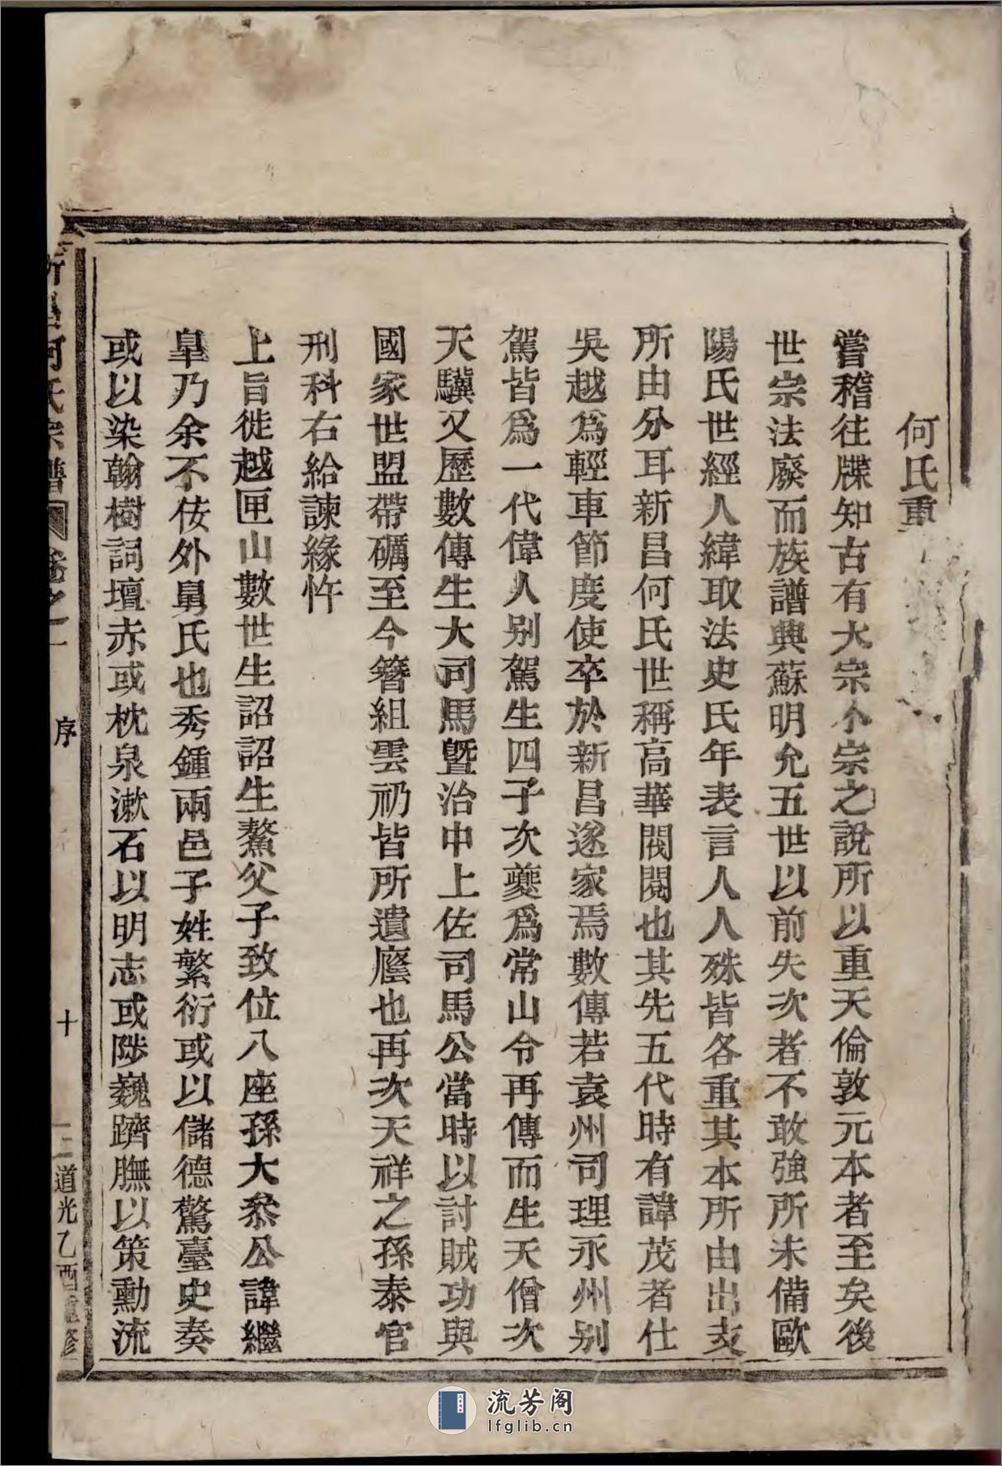 何氏重
嘗稽往牒知古有大宗小宗之說所以重天倫敦元本者至矣後
世宗法廢而族譜興蘇明允五世以前失次者不敢強所未備歐
陽氏世經人緯取法史氏年表言人人殊皆各重其本所由出支
所由分耳新昌何氏世稱高華閥閱也其先五代時有諱茂者仕
吳越爲輕車節度使卒於新昌遂家焉數傳若袁州司理永州别
駕皆爲一代偉人别駕生四子次夔爲常山令再傳而生天僧次
天驥又歷數傳生大司馬暨治中上佐司馬公當時以討賊功與
國家世盟帶礪至今簪組雲礽皆所遺廕也再次天祥之孫泰官
刑科右給諫緣忤
上旨徙越匣山數世生詔詔生鰲父子致位八座孫大叅公諱繼
臯乃余不佞外舅氏也秀鍾兩邑子姓繁衍或以儲德驚臺史奏
或以染翰樹詞壇赤或枕泉漱石以明志或陟巍躋膴以策勳流
新昌何氏宗譜 卷之一 序 十 道光乙酉重修
流芳阁
lfglib.cn